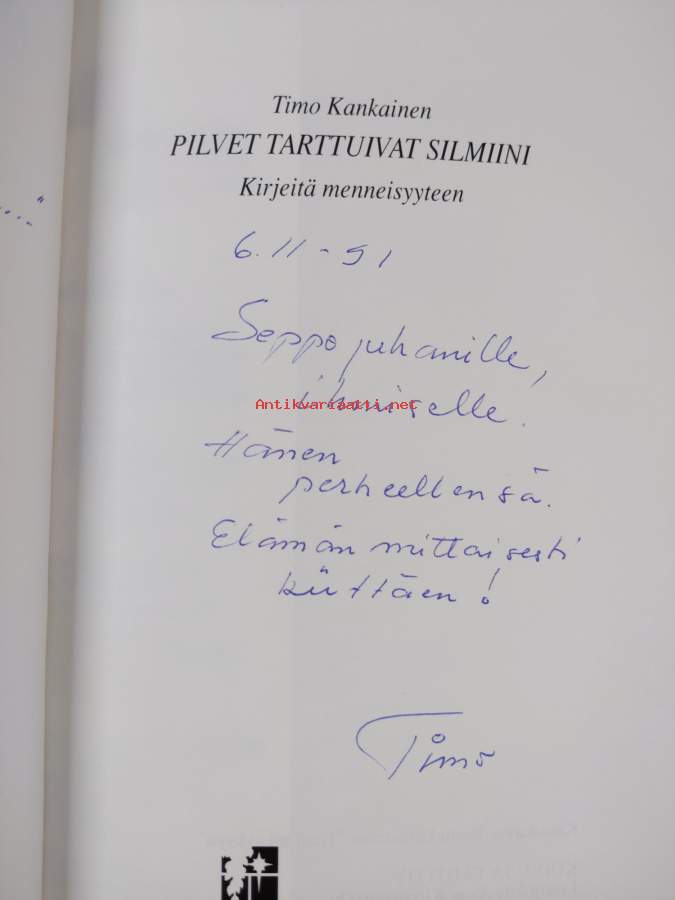 Timo Kankainen
PILVET TARTTUIVAT SILMIINI
Kirjeitä menneisyyteen
6.11-91
Seppo juhanille,
ihmiselle.
Antikvariaatti.net
Hänen
perheellensä.
Elämän mittaisesti
kiittäen!
Timo